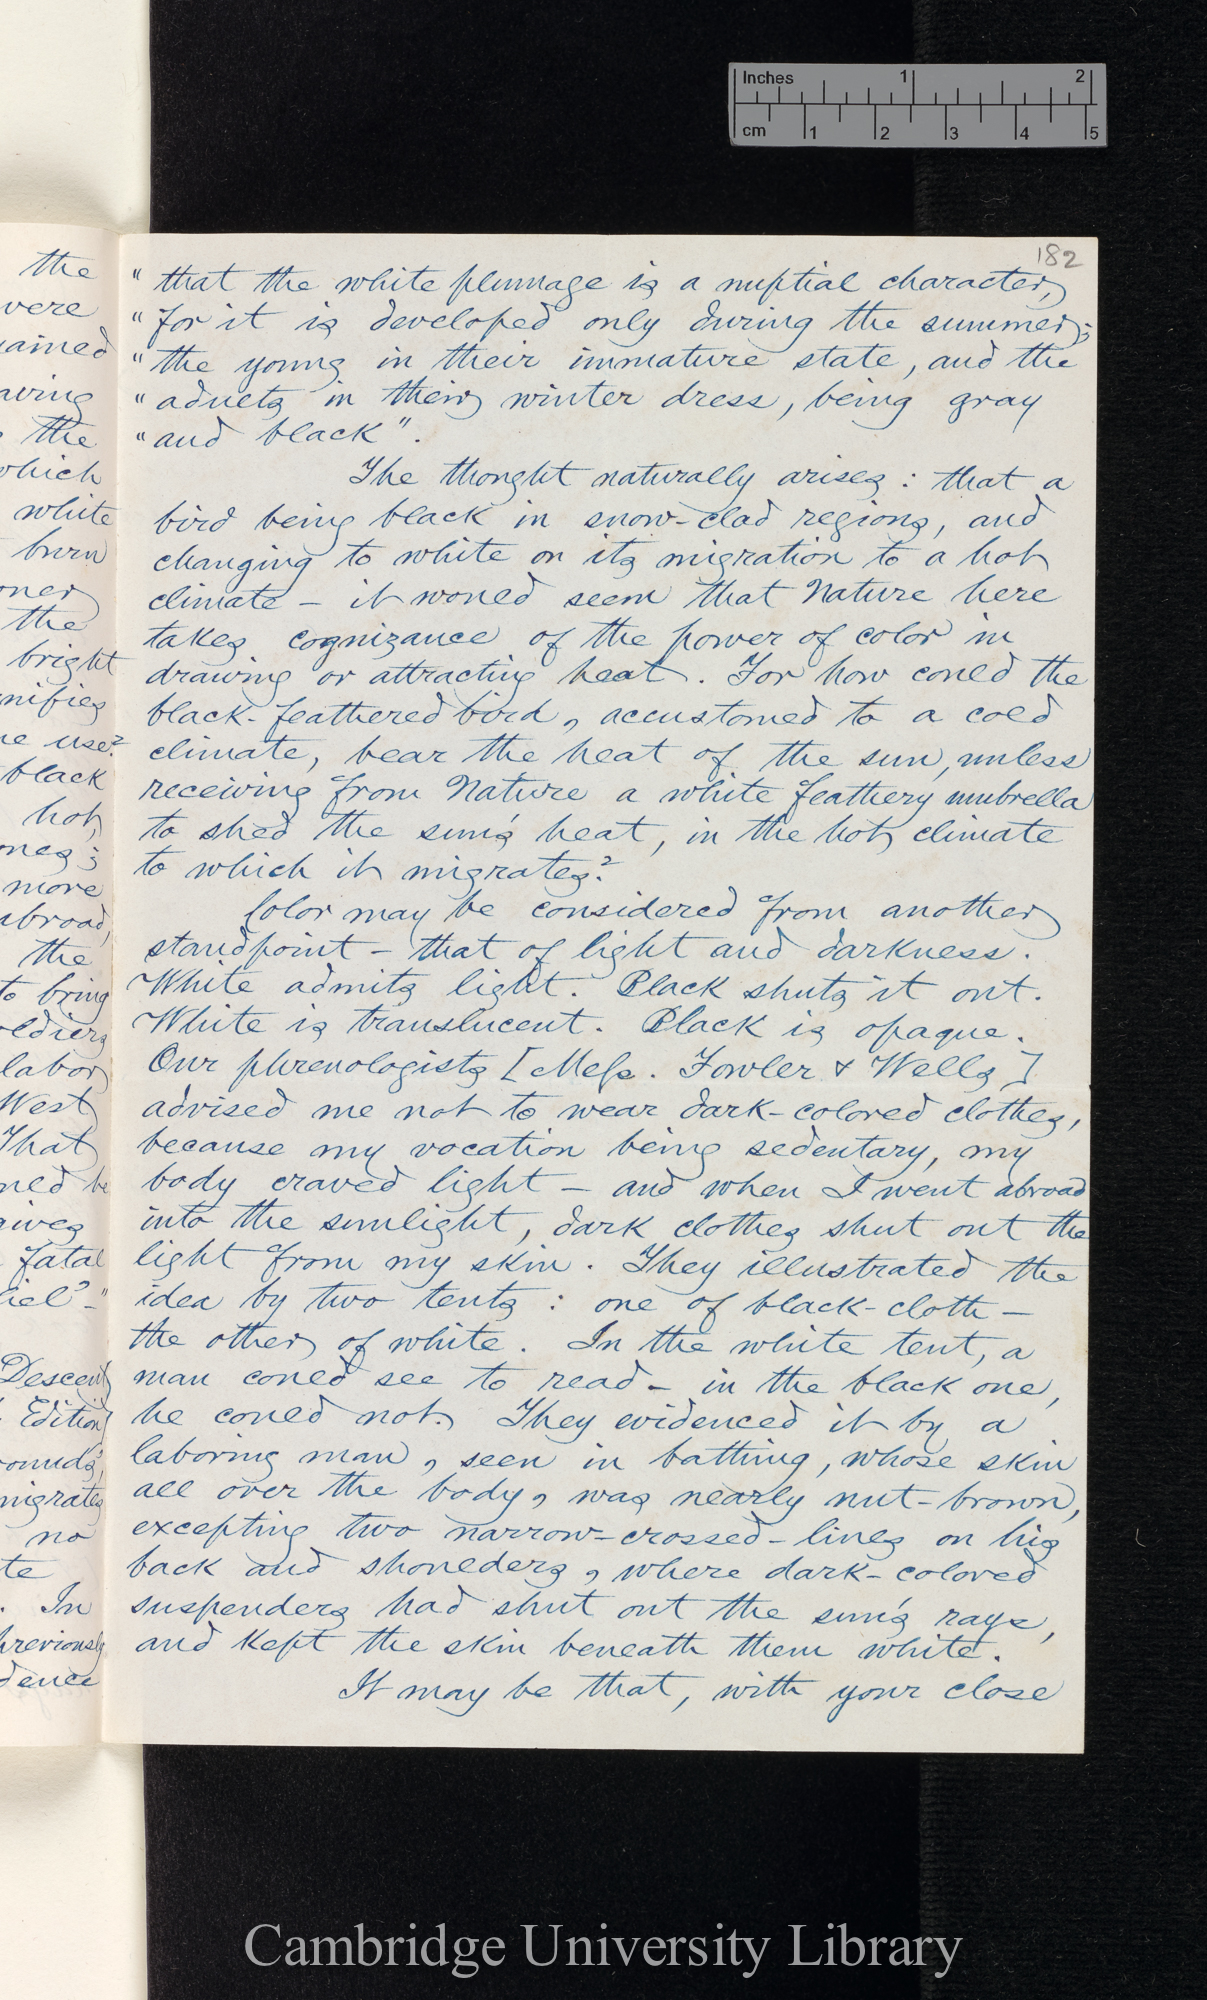 Inches 1 2
cm 1 2 3 4 5
182
the
were
ained
aving
the
which
white
burn
oner
the
bright
nifies
e use?
black
hot,
ones;
more
abroad,
the
to bring
oldiers
labor
West
That
ned be
gives
fatal
iel?-"
Descent
Edition
ounds,
migrates
no
te
. In
previously
dence
" that the white plumage is a nuptial character,
" for it is developed only during the summer;
" the young in their immature state, and the
" adults in their winter dress, being gray
" and black".
The thought naturally arises: that a
bird being black in snow-clad regions, and
changing to white on its migration to a hot
climate - it would seem that Nature here
takes cognizance of the power of color in
drawing or attracting heat. For how could the
black-feathered bird, accustomed to a cold
climate, bear the heat of the sun, unless
receiving from Nature a white feathery umbrella
to shed the sun's heat, in the hot climate
to which it migrates?
Color may be considered from another
standpoint - that of light and darkness.
White admits light. Black shuts it out.
White is translucent. Black is opaque.
Our phrenologists [Mess. Fowler & Wells]
advised me not to wear dark-colored clothes,
because my vocation being sedentary, my
body craved light - and when I went abroad
into the sunlight, dark clothes shut out the
light from my skin. They illustrated the
idea by two tents: one of black-cloth -
the other, of white. In the white tent, a
man could see to read - in the black one,
he could not. They evidenced it by a
laboring man, seen in bathing, whose skin
all over the body, was nearly nut-brown,
excepting two narrow-crossed-lines on his
back and shoulders, where dark-colored
suspenders had shut out the sun's rays,
and kept the skin beneath them white.
It may be that, with your close
Cambridge University Library